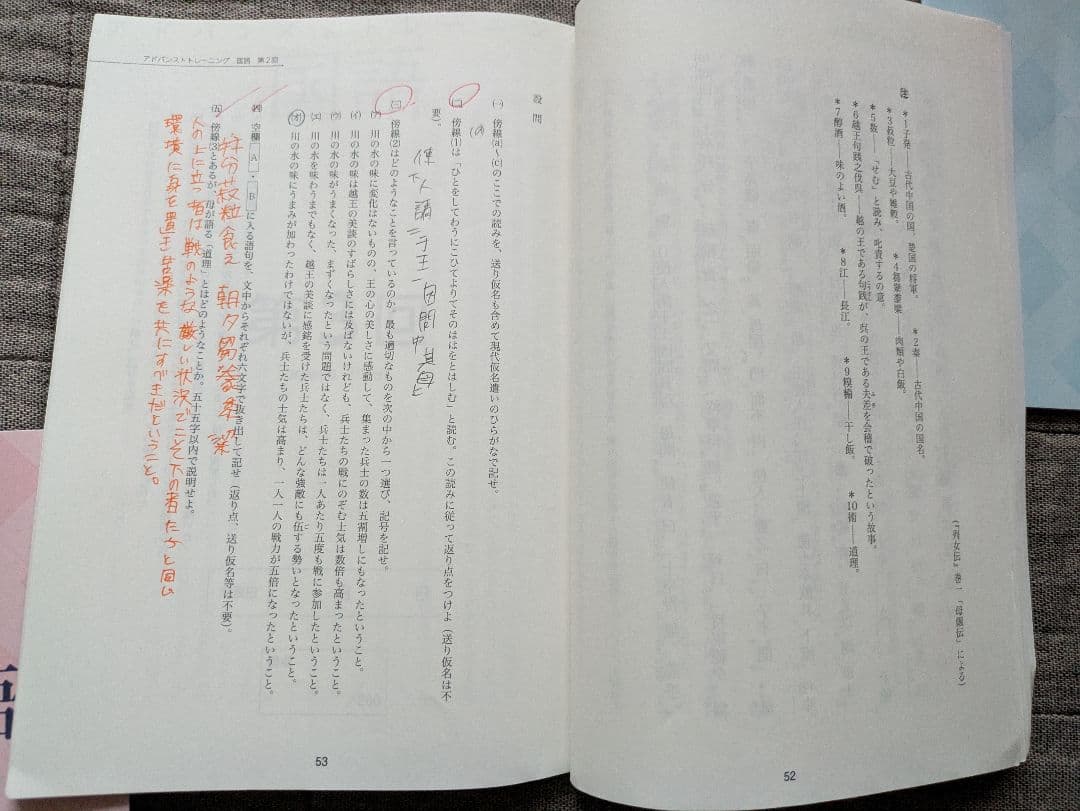 （『列女伝』巻一「母儀伝」による）
注
＊1子発――古代中国の国、楚国の将軍。　＊2秦――古代中国の国名。
＊3菽粒――大豆や雑穀。　＊4芻豢黍粱――肉類や白飯。
＊5数――「せむ」と読み、叱責するの意。
＊6越王句践之伐呉――越の王である句践が、呉の王である夫差を会稽で破ったという故事。
＊7醇酒――味のよい酒。　＊8江――長江。　＊9糗糒――干し飯。　＊10術――道理。
52
アドバンストトレーニング　国語　第2回
設問
㈠　傍線(a)～(c)のここでの読みを、送り仮名も含めて現代仮名遣いのひらがなで記せ。
(a)
㈡　傍線(1)は「ひとをしてわうにこひてよりてそのははをとはしむ」と読む。この読みに従って返り点をつけよ（送り仮名は不
要）。
使下人請二于王一因問中其母上
㈢　傍線(2)はどのようなことを言っているのか。最も適切なものを次の中から一つ選び、記号を記せ。
㋐　川の水の味に変化はないものの、王の心の美しさに感動して、集まった兵士の数は五割増しにもなったということ。
㋑　川の水の味は越王の美談のすばらしさには及ばないけれども、兵士たちの戦にのぞむ士気は数倍も高まったということ。
㋒　川の水の味がうまくなった、まずくなったという問題ではなく、兵士たちは一人あたり五度も戦に参加したということ。
㋓　川の水を味わうまでもなく、越王の美談に感銘を受けた兵士たちは、どんな強敵にも伍する勢いとなったということ。
㋔　川の水の味にうまみが加わったわけではないが、兵士たちの士気は高まり、一人一人の戦力が五倍になったということ。
㈣　空欄　A　・　B　に入る語句を、文中からそれぞれ六文字で抜き出して記せ（返り点、送り仮名等は不要）。
分菽粒食之　朝夕芻豢黍粱
㈤　傍線(3)とあるが、母が語る「道理」とはどのようなことか。五十五字以内で説明せよ。
人の上に立つ者は戦のような厳しい状況でこそ下の者たちと同じ
環境に身を置き苦楽を共にすべきだということ。
53